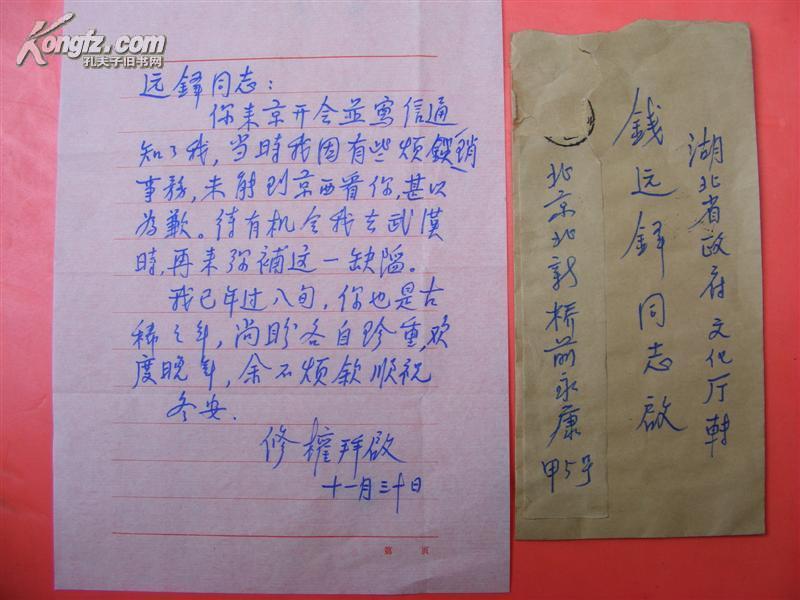 Kongfz.com
孔夫子旧书网
远鋒同志：
你来京开会並寫信通
知了我，当時我因有些烦锁琐
事務，未能到京西看你，甚以
為歉。待有机会我去武漢
時，再来弥補这一缺陷。
我已年过八旬，你也是古
稀之年，尚盼各自珍重，欢
度晚年，余不烦敘順祝
冬安.
修權拜啟
十一月三十日
第 页
湖北省政府文化厅轉
錢远鋒同志啟
北京北新桥前永康
甲5号